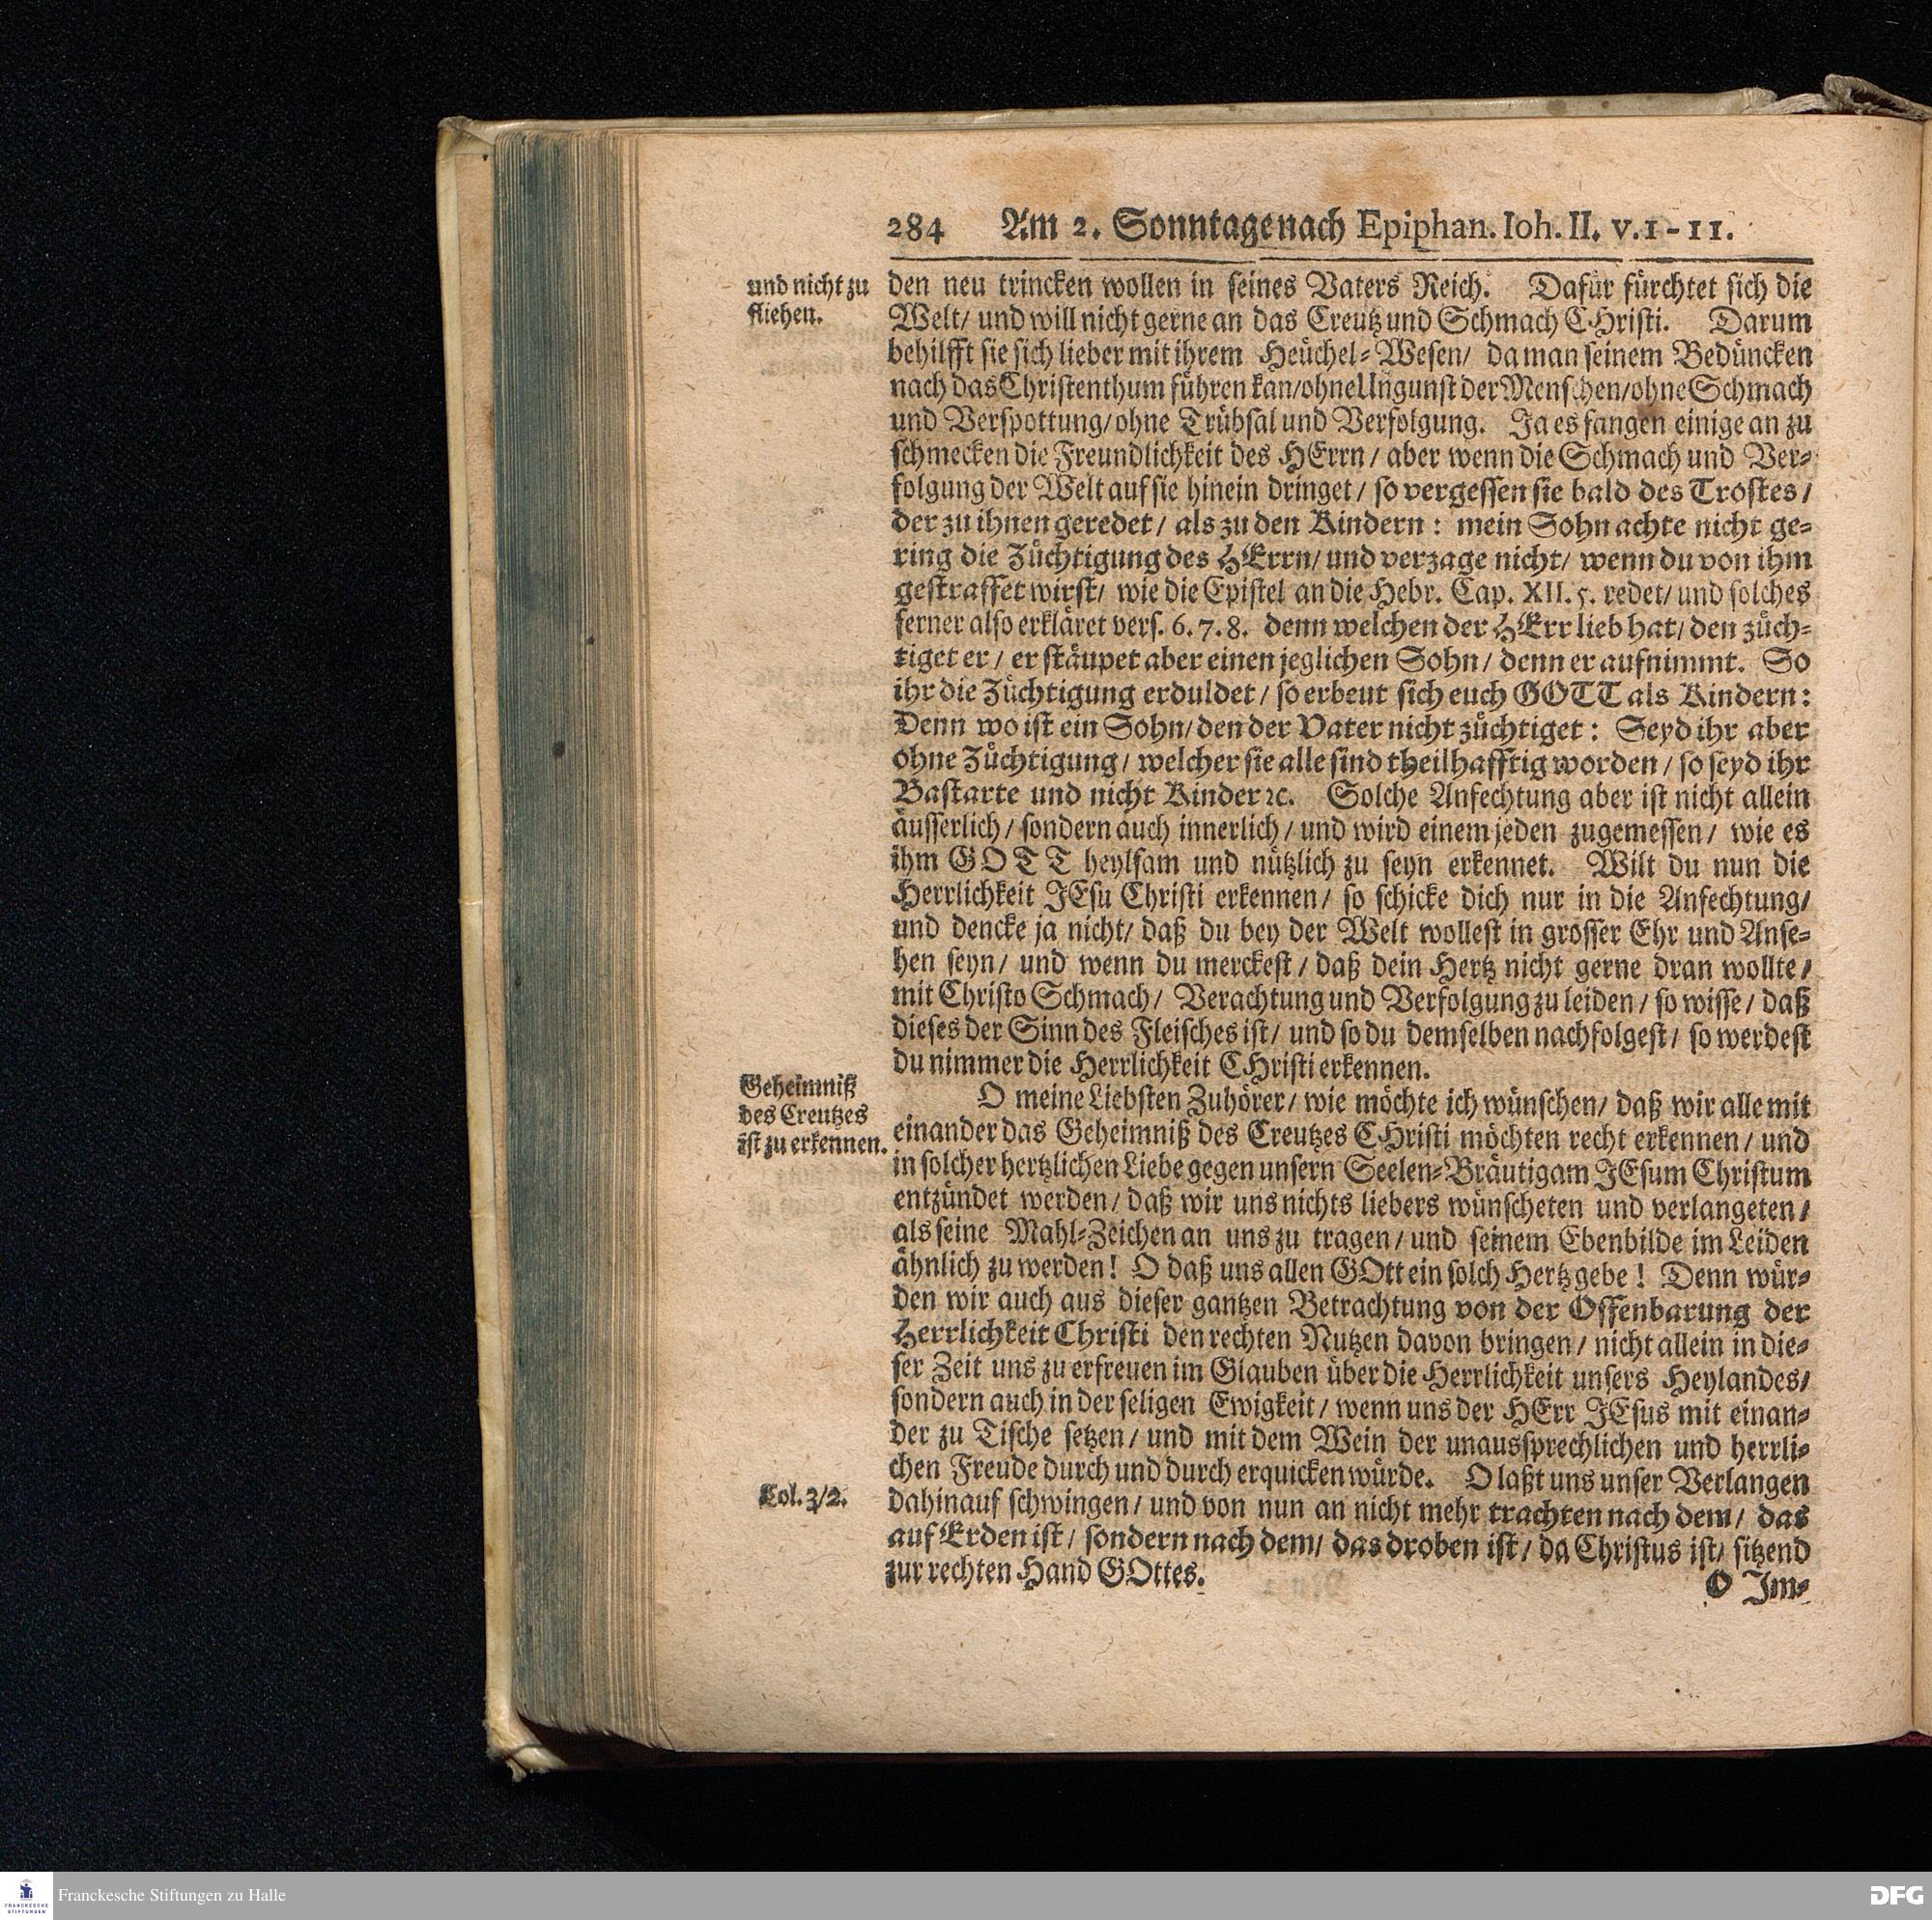 284 Am 2. Sonntage nach Epiphan. Ioh. II. v. 1-11.
und nicht zu
fliehen.
den neu trincken wollen in seines Vaters Reich. Dafür fürchtet sich die
Welt/ und will nicht gerne an das Creutz und Schmach CHristi. Darum
behilfft sie sich lieber mit ihrem Heüchel-Wesen/ da man seinem Bedüncken
nach das Christenthum führen kan/ ohne Ungunst der Menschen/ ohne Schmach
und Verspottung/ ohne Trübsal und Verfolgung. Ja es fangen einige an zu
schmecken die Freundlichkeit des HErrn/ aber wenn die Schmach und Ver-
folgung der Welt auf sie hinein dringet/ so vergessen sie bald des Trostes/
der zu ihnen geredet/ als zu den Kindern: mein Sohn achte nicht ge-
ring die Züchtigung des HErrn/ und verzage nicht/ wenn du von ihm
gestraffet wirst/ wie die Epistel an die Hebr. Cap. XII. 5. redet/ und solches
ferner also erkläret vers. 6. 7. 8. denn welchen der HErr lieb hat/ den züch-
tiget er/ er stäupet aber einen jeglichen Sohn/ denn er aufnimmt. So
ihr die Züchtigung erduldet/ so erbeut sich euch GOTT als Kindern:
Denn wo ist ein Sohn/ den der Vater nicht züchtiget: Seyd ihr aber
ohne Züchtigung/ welcher sie alle sind theilhafftig worden/ so seyd ihr
Bastarte und nicht Kinder ꝛc. Solche Anfechtung aber ist nicht allein
äusserlich/ sondern auch innerlich/ und wird einem jeden zugemessen/ wie es
ihm GOTT heylsam und nützlich zu seyn erkennet. Wilt du nun die
Herrlichkeit JEsu Christi erkennen/ so schicke dich nur in die Anfechtung/
und dencke ja nicht/ daß du bey der Welt wollest in grosser Ehr und Anse-
hen seyn/ und wenn du merckest/ daß dein Hertz nicht gerne dran wollte/
mit Christo Schmach/ Verachtung und Verfolgung zu leiden/ so wisse/ daß
dieses der Sinn des Fleisches ist/ und so du demselben nachfolgest/ so werdest
du nimmer die Herrlichkeit CHristi erkennen.
Geheimniß
des Creutzes
ist zu erkennen.
O meine Liebsten Zuhörer/ wie möchte ich wünschen/ daß wir alle mit
einander das Geheimniß des Creutzes CHristi möchten recht erkennen/ und
in solcher hertzlichen Liebe gegen unsern Seelen-Bräutigam JEsum Christum
entzündet werden/ daß wir uns nichts liebers wünscheten und verlangeten/
als seine Mahl-Zeichen an uns zu tragen/ und seinem Ebenbilde im Leiden
ähnlich zu werden! O daß uns allen GOtt ein solch Hertz gebe! Denn wür-
den wir auch aus dieser gantzen Betrachtung von der Offenbarung der
Herrlichkeit Christi den rechten Nutzen davon bringen/ nicht allein in die-
ser Zeit uns zu erfreuen im Glauben über die Herrlichkeit unsers Heylandes/
sondern auch in der seligen Ewigkeit/ wenn uns der HErr JEsus mit einan-
der zu Tische setzen/ und mit dem Wein der unaussprechlichen und herrli-
chen Freude durch und durch erquicken würde. O laßt uns unser Verlangen
Col. 3/2.
dahinauf schwingen/ und von nun an nicht mehr trachten nach dem/ das
auf Erden ist/ sondern nach dem/ das droben ist/ da Christus ist/ sitzend
zur rechten Hand GOttes.
O Jm-
Franckesche Stiftungen zu Halle
FRANCKESCHE STIFTUNGEN
DFG